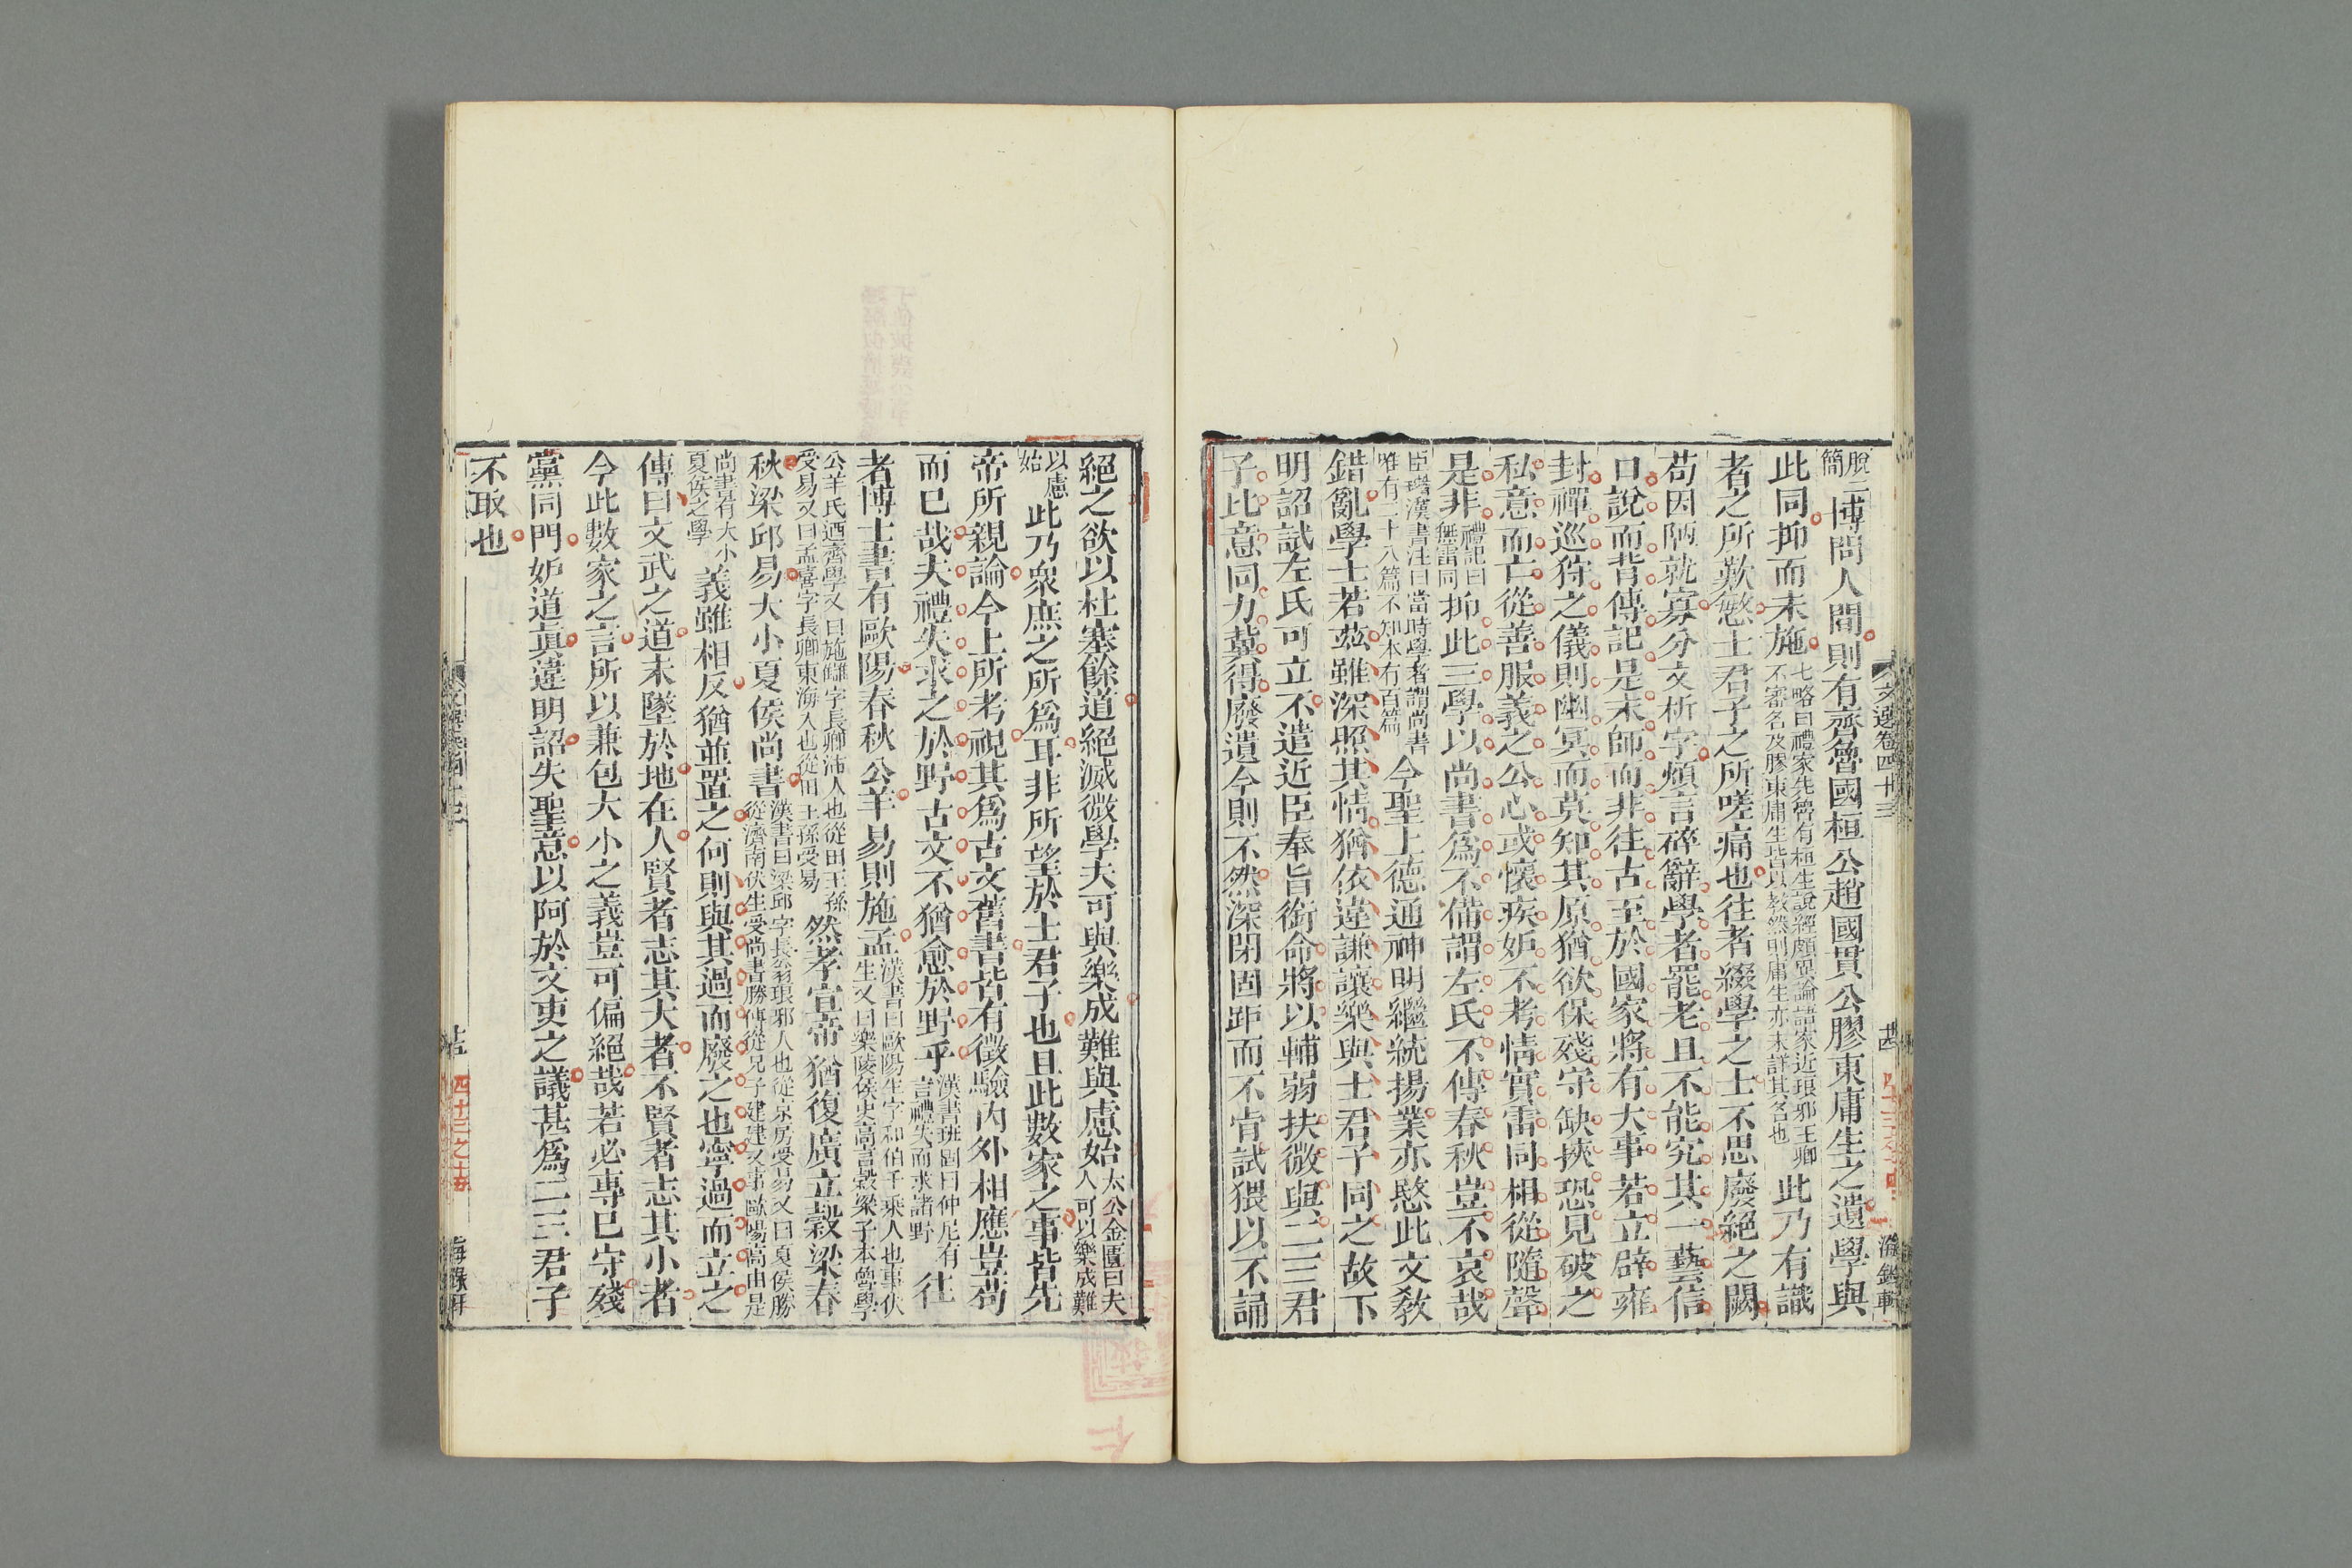 脫二
簡 博問人間則有齊魯國桓公趙國貫公膠東庸生之遺學與
此同抑而未施 七略曰禮家先魯有桓生說經頗異論語家近琅邪王卿
不審名及膠東庸生皆以教然則庸生亦未詳其名也 此乃有識
者之所歎慜士君子之所嗟痛也往者綴學之士不思廢絕之闕
苟因陋就寡分文析字煩言碎辭學者罷老且不能究其一藝信
口說而背傳記是末師而非往古至於國家將有大事若立辟雍
封禪巡狩之儀則幽冥而莫知其原猶欲保殘守缺挾恐見破之
私意而亡從善服義之公心或懷疾妒不考情實雷同相從隨聲
是非 禮記曰
無雷同 抑此三學以尚書爲不備謂左氏不傳春秋豈不哀哉
臣瓚漢書注曰當時學者謂尚書
唯有二十八篇不知本有百篇 今聖上德通神明繼統揚業亦愍此文教
錯亂學士若茲雖深照其情猶依違謙讓樂與士君子同之故下
明詔試左氏可立不遣近臣奉旨銜命將以輔弱扶微與二三君
子比意同力冀得廢遺今則不然深閉固距而不肯試猥以不誦
文選卷四十三
絕之欲以杜塞餘道絕滅微學夫可與樂成難與慮始 太公金匱曰夫
人可以樂成難
以慮
始 此乃衆庶之所爲耳非所望於士君子也且此數家之事皆先
帝所親論今上所考視其爲古文舊書皆有徵驗內外相應豈苟
而已哉夫禮失求之於野古文不猶愈於野乎 漢書班固曰仲尼有
言禮失而求諸野 往
者博士書有歐陽春秋公羊易則施孟 漢書曰歐陽生字和伯千乘人也事伏
生又曰樂陵侯史高言穀梁子本魯學
公羊氏迺齊學又曰施讎字長卿沛人也從田王孫
受易又曰孟喜字長卿東海人也從田王孫受易 然孝宣帝猶復廣立穀梁春
秋梁邱易大小夏侯尚書 漢書曰梁邱字長翁琅邪人也從京房受易又曰夏侯勝
從濟南伏生受尚書勝傳從兄子建建又事歐陽高由是
尚書有大小
夏侯之學 義雖相反猶並置之何則與其過而廢之也寧過而立之
傳曰文武之道未墜於地在人賢者志其大者不賢者志其小者
今此數家之言所以兼包大小之義豈可偏絕哉若必專已守殘
黨同門妒道真違明詔失聖意以阿於文吏之議甚爲二三君子
不取也
四十三之十五